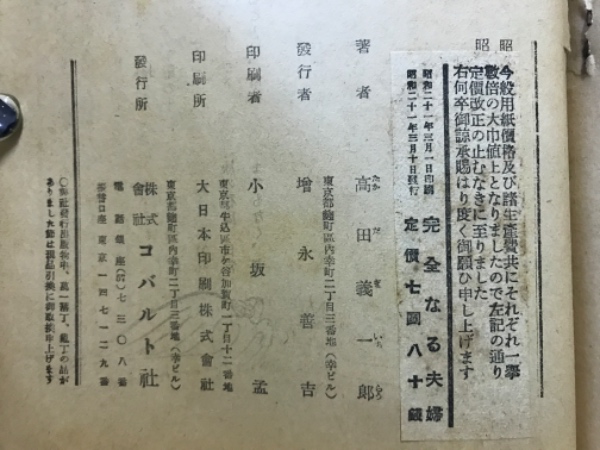 昭
昭
今般用紙價格及び諸生產費共にそれぞれ一擧
數倍の大巾値上となりましたので左記の通り
定價改正の止むなきに至りました
右何卒御諒承賜はり度く御願ひ申し上げます
昭和二十一年三月一日印刷
昭和二十一年三月十日發行
完全なる夫婦
定價七圓八十錢
著者 高田義一郎
たか だ ぎ いち らう
東京都麴町區內幸町二丁目三番地(幸ビル)
發行者 增永善吉
東京都牛込區市ケ谷加賀町一丁目十二番地
印刷者 小坂孟
印刷所 大日本印刷株式會社
東京都麴町區內幸町二丁目三番地(幸ビル)
發行所 株式會社 コバルト社
電話銀座(57)七三〇八番
振替口座東京一四七一二九番
〇弊社發行出版物中、萬一落丁、亂丁の品が
ありました際は該品引換に御取換申上げます